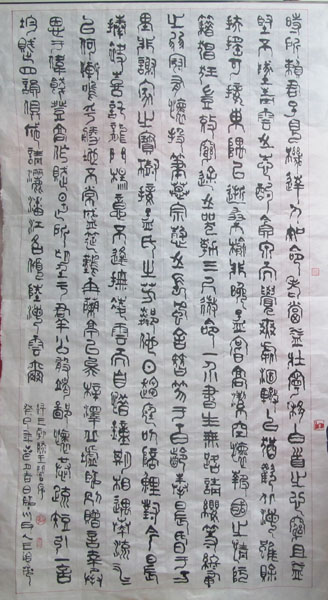 時所賴君子見機達人知命老當益壯寧移白首之心窮且益
堅不墜青雲之志酌貪泉而覺爽處涸轍以猶歡北海雖賒
扶搖可接東隅已逝桑榆非晚孟嘗高潔空懷報國之情阮
籍猖狂豈效窮途之哭勃三尺微命一介書生無路請纓等終軍
之弱冠有懷投筆慕宗愨之長風舍簪笏于百齡奉晨昏于萬
里非謝家之寶樹接孟氏之芳鄰他日趨庭叨陪鯉對今晨
捧袂喜託龍門楊意不逢撫凌雲而自惜鐘期相遇奏流水
以何慚嗚呼勝地不常盛筵難再蘭亭已矣梓澤丘墟臨別贈言幸承
恩于偉餞登高作賦是所望于群公敢竭鄙懷恭疏短引一言
均賦四韻俱成請灑潘江各傾陸海云爾